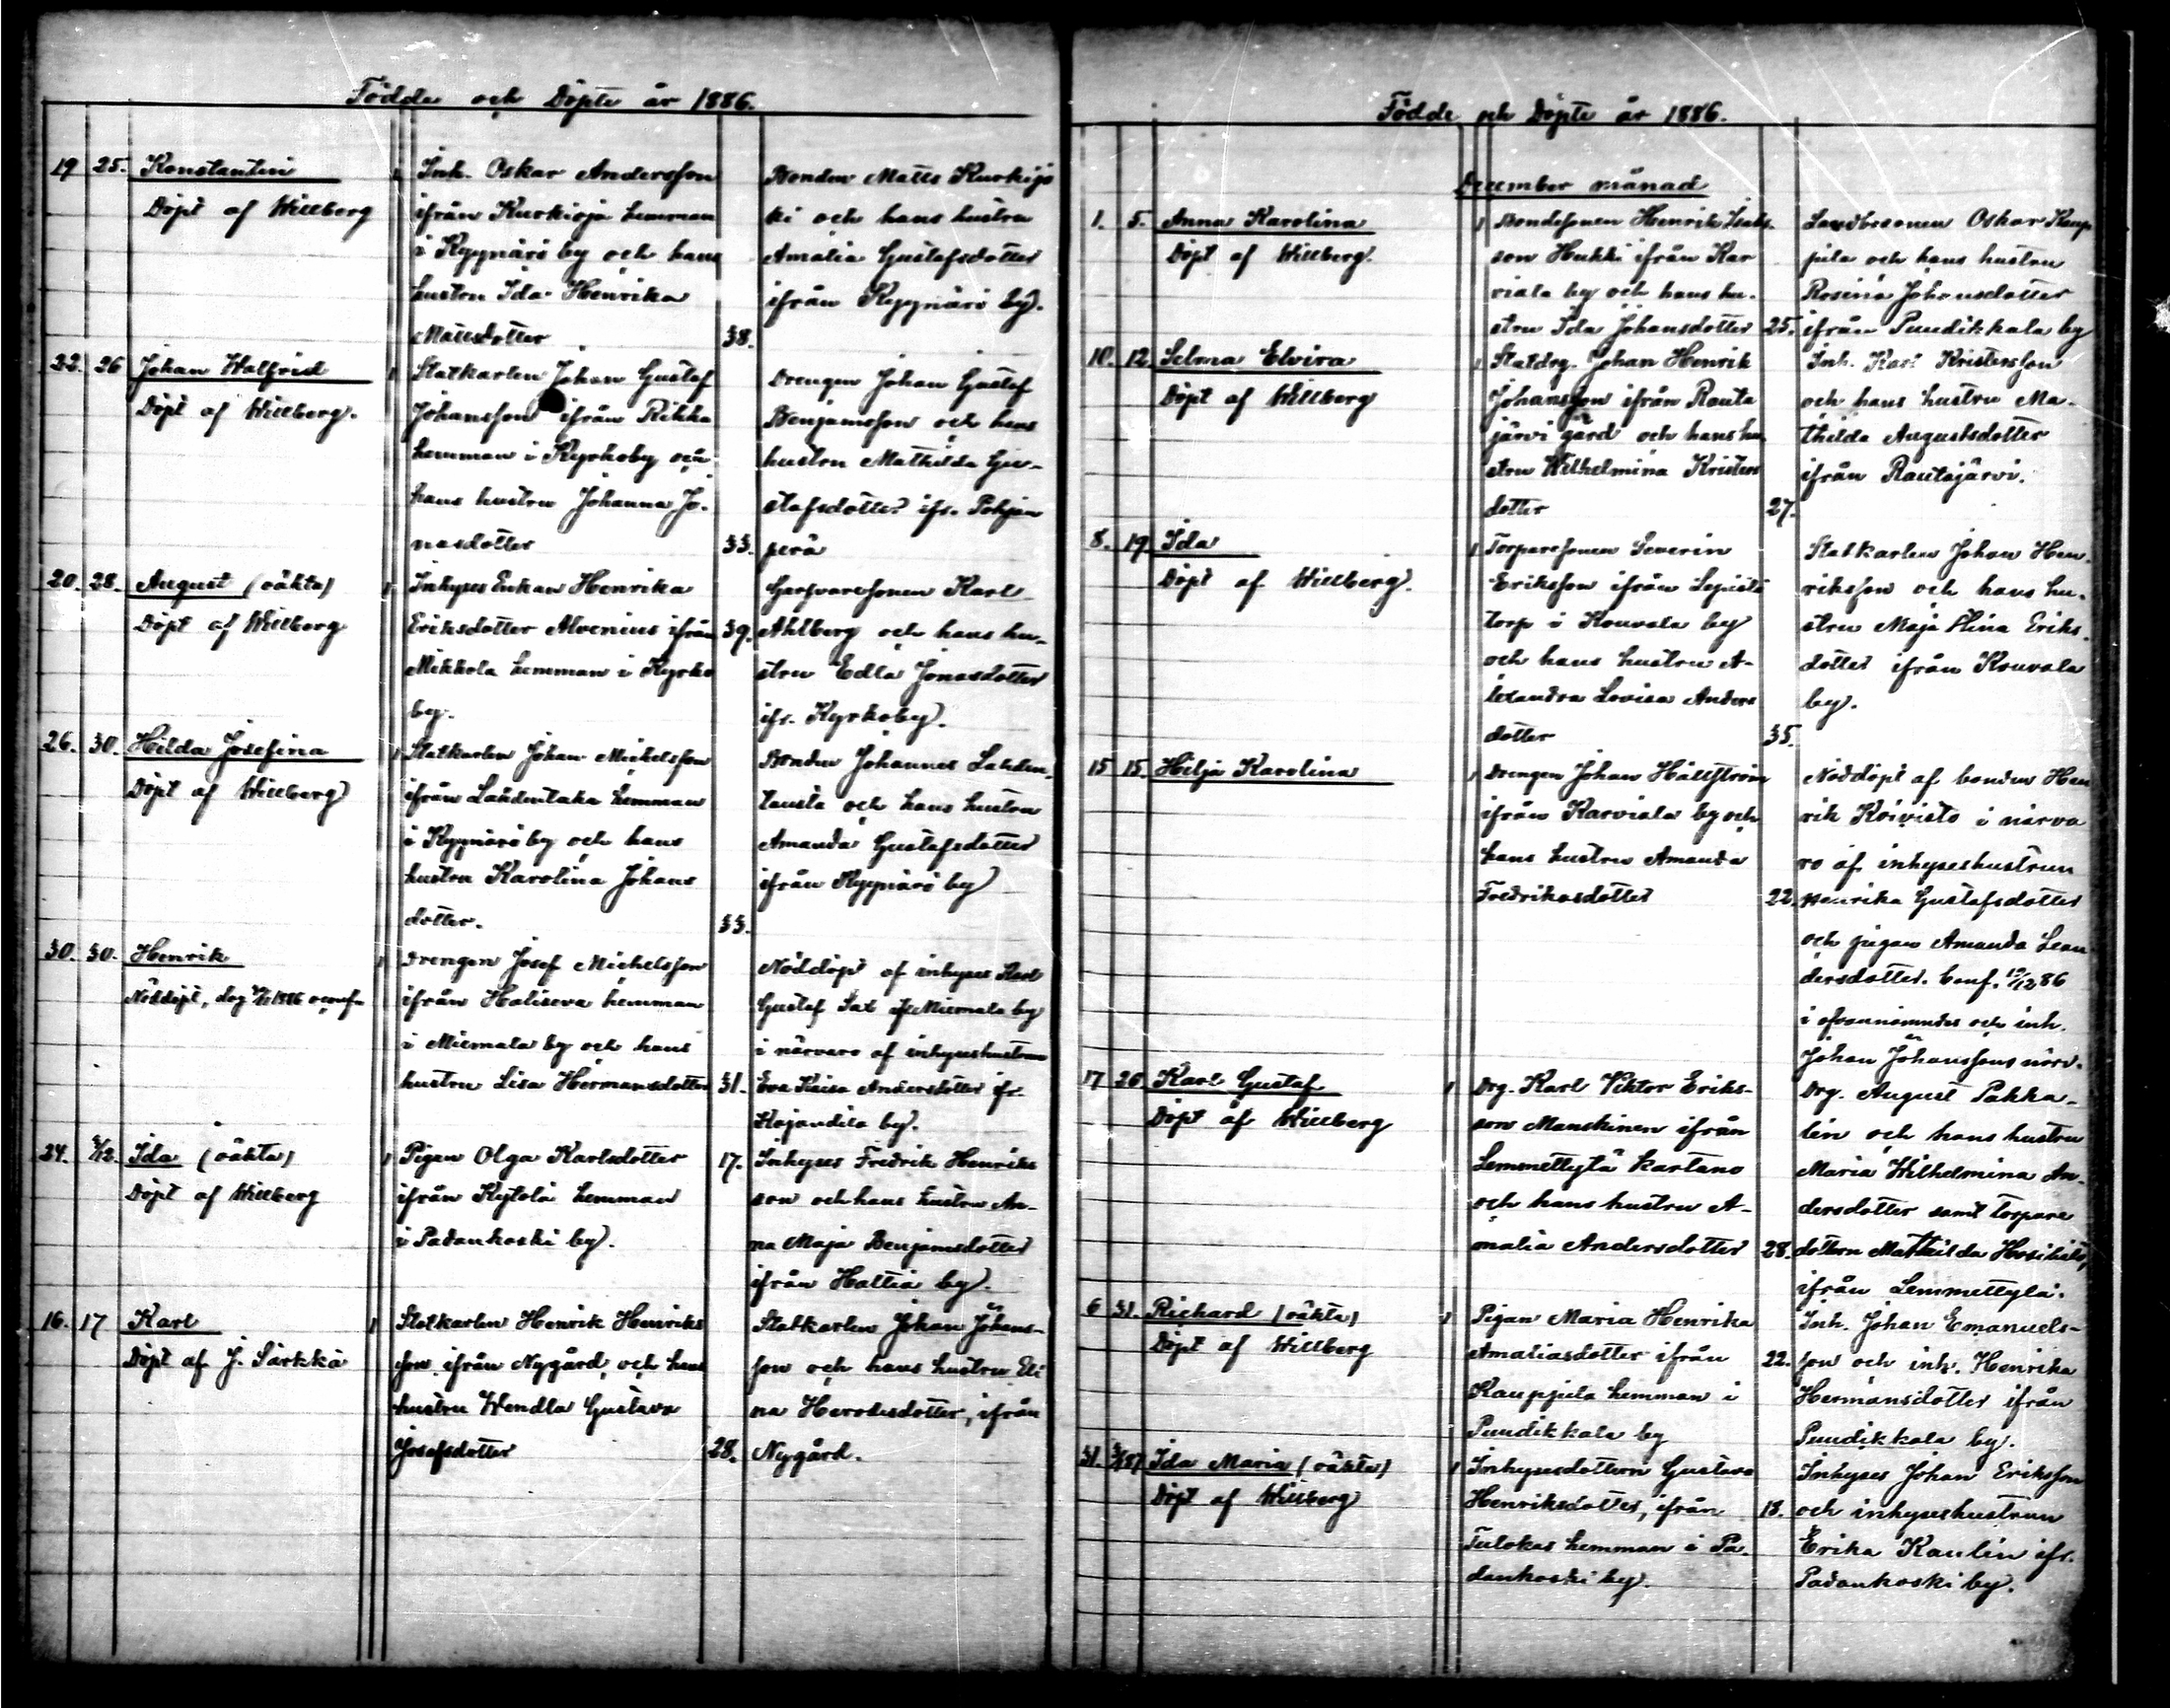 Födde och Döpte år 1886.
19 25. Konstantin
Döpt af Willberg
1 Inh. Oskar Andersson
ifrån Kurkioja hemman
i Kyynärö by och hans
hustru Ida Henrika
Mattsdotter 38.
Bonden Matts Kurkijo
ki och hans hustru
Amalia Gustafsdotter
ifrån Kyynärö by.
22. 26 Johan Walfrid
Döpt af Willberg.
1 Statkarlen Johan Gustaf
Johansson ifrån Rikka
hemman i Kyrkoby och
hans hustru Johanna Jo-
nasdotter 33.
Drengen Johan Gustaf
Benjamsson och hans
hustru Mathilda Gu-
stafsdotter ifr. Pohjan
perä
20. 28. August (oäkta)
Döpt af Willberg
1 Inhyses Enkan Henrika
Eriksdotter Alvenius ifrån 39.
Mikkola hemman i Kyrko
by.
Garfvaresonen Karl
Ahlberg och hans hu-
stru Edla Jonasdotter
ifr. Kyrkoby.
26. 30. Hilda Josefina
Döpt af Willberg
1 Statkarlen Johan Michelsson
ifrån Lahdentaka hemman
i Kyynärö by och hans
hustru Karolina Johans
dotter. 33.
Bonden Johannes Lahden
tausta och hans hustru
Amanda Gustafsdotter
ifrån Kyynärö by
30. 30. Henrik
Nöddöpt, dog 1886
1 Drengen Josef Michelsson
ifrån Haliseva hemman
i Miemala by och hans
hustru Lisa Hermansdotter 31.
Nöddöpt af inhyses Karl
Gustaf af Miemala by
i närvaro af inhyseshustrun
Eva Kaisa Andersdotter ifr.
by.
24. 5/12. Ida (oäkta)
Döpt af Willberg
1 Pigan Olga Karlsdotter 17.
ifrån Kytölä hemman
i Padankoski by.
Inhyses Fredrik Henriks
son och hans hustru An-
na Maja Benjamsdotter
ifrån Hattia by.
16. 17 Karl
Döpt af J. Särkkä
1 Statkarlen Henrik Henriks
son ifrån Nygård, och hans
hustru Wendla Gustava
Josefsdotter 28.
Statkarlen Johan Johans-
son och hans hustru Eli
na Herodesdotter, ifrån
Nygård.
Födde och Döpte år 1886.
December månad
1. 5. Anna Karolina
Döpt af Willberg.
1 Bondesonen Henrik Isaks-
son Hukki ifrån Kar
viala by och hans hu-
stru Ida Johansdotter 25.
Landbosonen Oskar Kaup
pila och hans hustru
Rosina Johansdotter
ifrån Puudikkala by
10. 12. Selma Elvira
Döpt af Willberg
1 Statdrg. Johan Henrik
Johansson ifrån Rauta
järvi gård och hans hu-
stru Wilhelmina Kristers
dotter 27.
Inh. Karl Kristersson
och hans hustru Ma-
thilda Augustsdotter
ifrån Rautajärvi.
8. 19. Ida
Döpt af Willberg.
1 Torparesonen Severin
Eriksson ifrån Lepistö
torp i Kouvala by
och hans hustru A-
lexandra Lovisa Anders
dotter 35.
Statkarlen Johan Hen-
riksson och hans hu-
stru Maja Stina Eriks-
dotter ifrån Kouvala
by.
15 15. Hilja Karolina
1 Drengen Johan Hällström
ifrån Karviala by och
hans hustru Amanda
Fredriksdotter 22.
Nöddöpt af bonden Hen
rik Koivisto i närva
ro af inhyseshustrun
Henrika Gustafsdotter
och pigan Amanda Lean
dersdotter. Conf. 19/12 86
i ofvannämndes och inh.
Johan Johanssons närv.
17 26 Karl Gustaf
Döpt af Willberg
1 Drg. Karl Viktor Eriks-
son Manskinen ifrån
Lemmettylä kartano
och hans hustru A-
malia Andersdotter 28.
Drg. August Pakka-
lin och hans hustru
Maria Wilhelmina An-
dersdotter samt torpare
dottern Mathilda
ifrån Lemmettylä.
6 31. Richard (oäkta)
Döpt af Willberg
1 Pigan Maria Henrika
Amaliasdotter ifrån 22.
Kauppila hemman i
Puudikkala by
Inh. Johan Emanuels-
son och inh. Henrika
Hermansdotter ifrån
Puudikkala by.
31. Ida Maria (oäkta)
Döpt af Willberg
1 Inhysesdottern Gustava
Henriksdotter, ifrån 18.
Tulokas hemman i Pa-
dankoski by.
Inhyses Johan Eriksson
och inhyseshustrun
Erika Kaulin ifr.
Padankoski by.